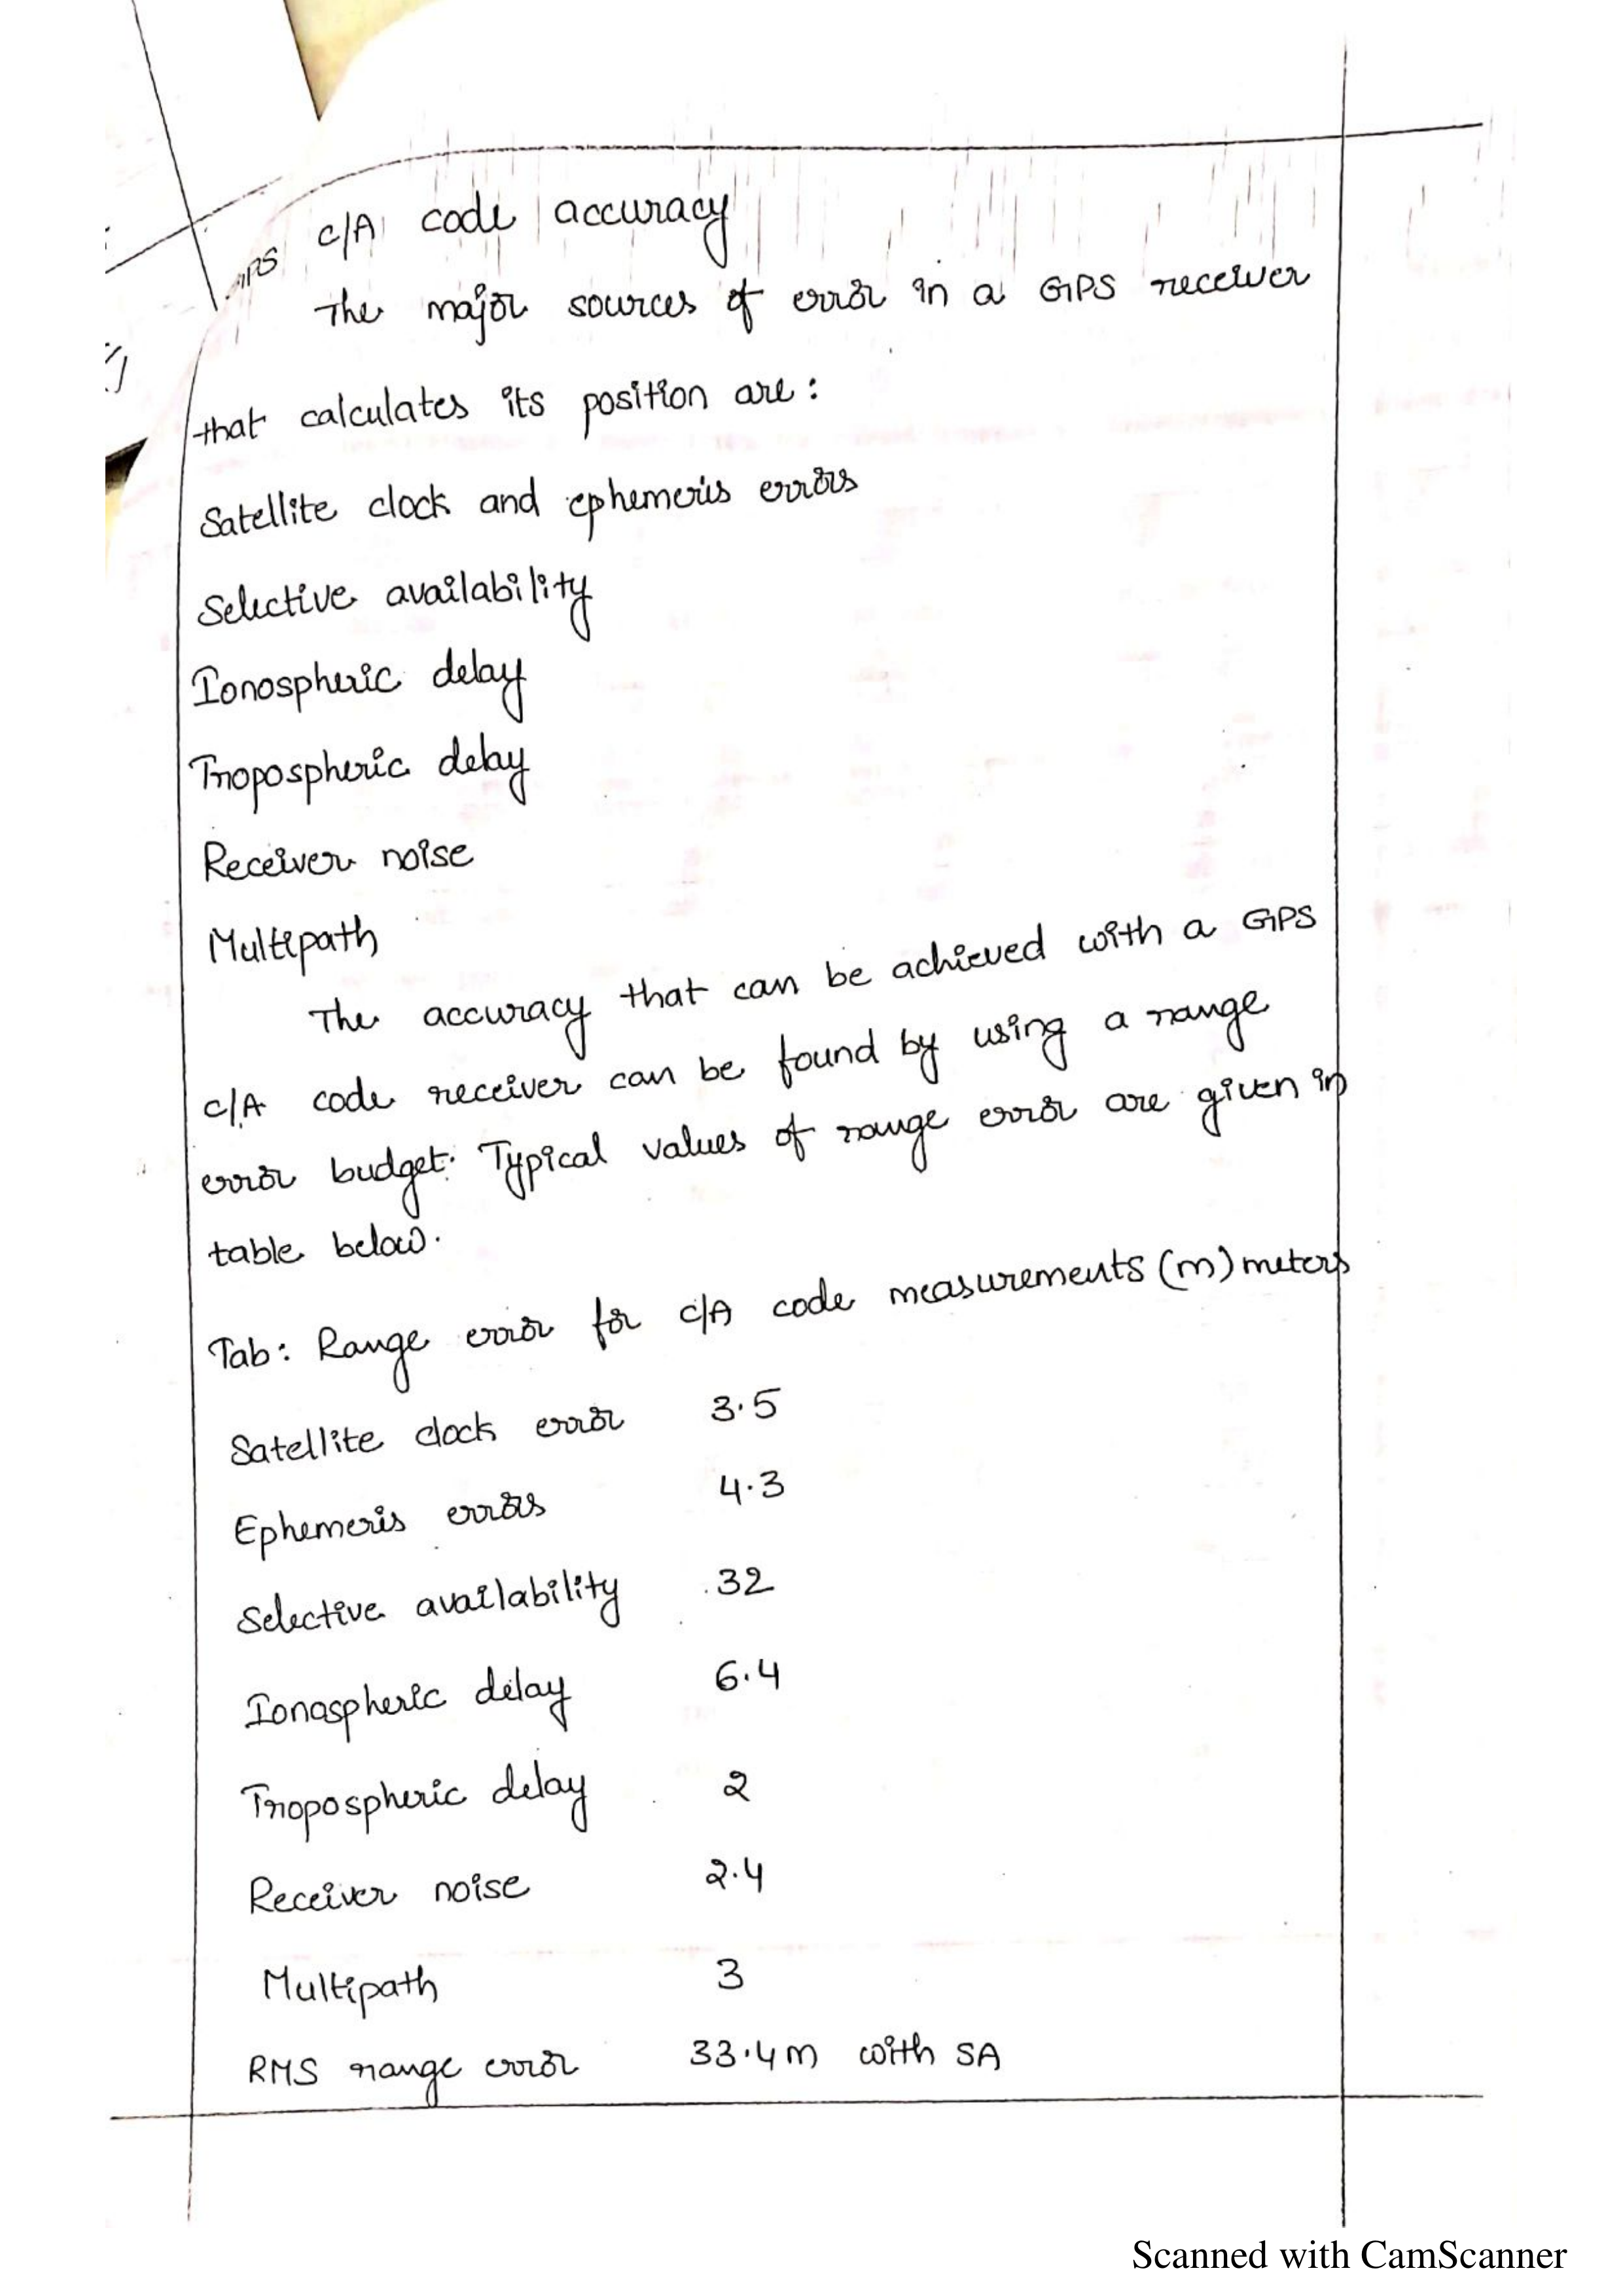 GPS C/A code accuracy
The major sources of error in a GPS receiver
that calculates its position are:
Satellite clock and ephemeris errors
Selective availability
Ionospheric delay
Tropospheric delay
Receiver noise
Multipath
The accuracy that can be achieved with a GPS
C/A code receiver can be found by using a range
error budget. Typical values of range error are given in
table below.
Tab: Range error for C/A code measurements (m) meters
Satellite clock error 3.5
Ephemeris errors 4.3
Selective availability 32
Ionaspheric delay 6.4
Tropospheric delay 2
Receiver noise 2.4
Multipath 3
RMS range error 33.4m with SA
Scanned with CamScanner